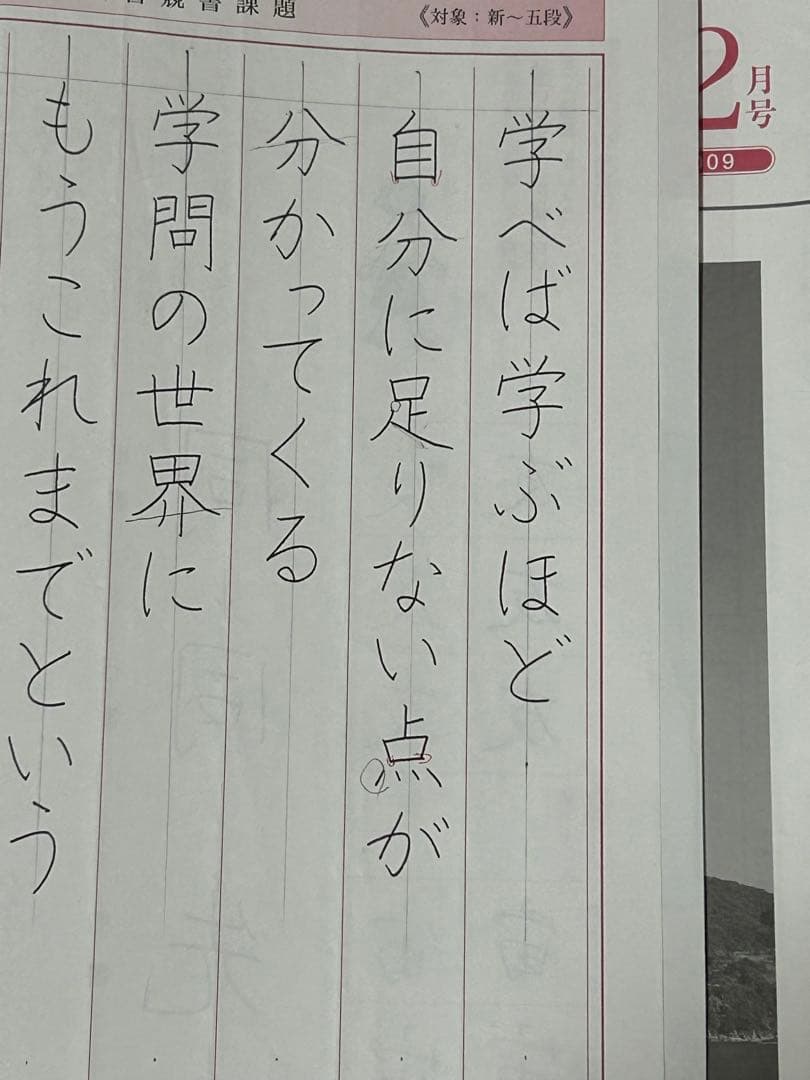 競書課題
《対象：新～五段》
学べば学ぶほど
自分に足りない点が
分かってくる
学問の世界に
もうこれまでという
2月号
09